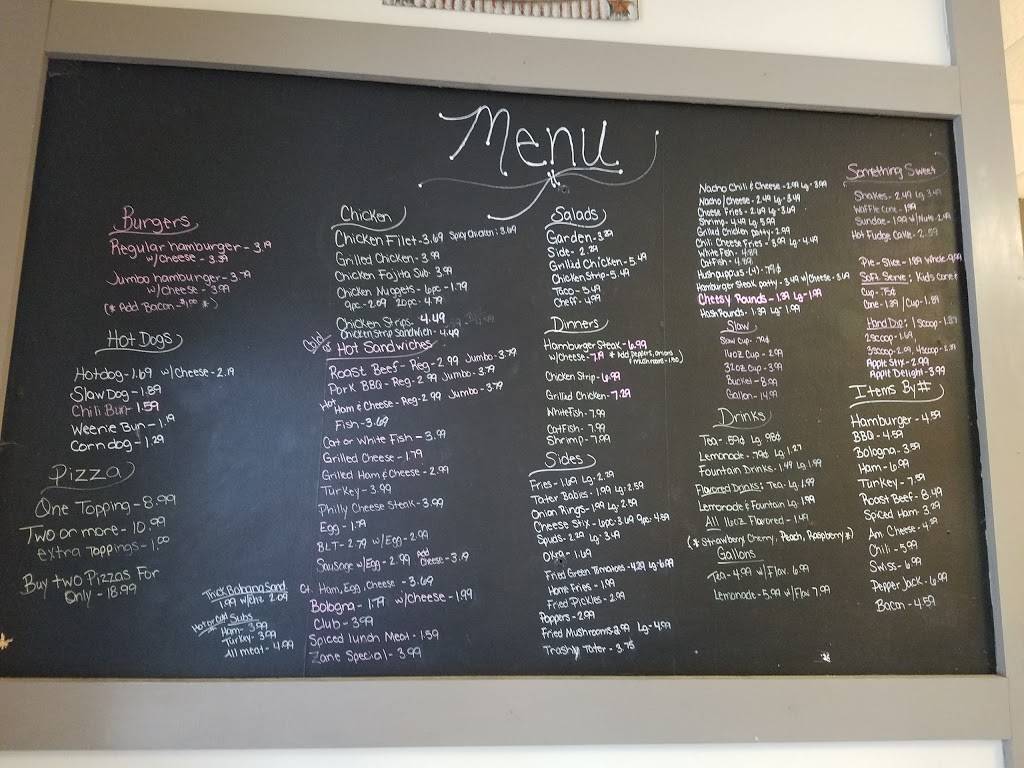 Menu
Burgers
Regular hamburger - 3.19
w/cheese - 3.39
Jumbo hamburger - 3.79
w/cheese - 3.99
(* Add Bacon - $1.00 *)
Hot Dogs
Hotdog - 1.69 w/cheese - 2.19
Slaw Dog - 1.89
Chili Bun - 1.59
Weenie Bun - 1.19
Corndog - 1.29
Pizza
One Topping - 8.99
Two or more - 10.99
extra Toppings - 1.00
Buy two Pizzas For
Only - 18.99
Thick Bologna Sand
1.99 w/chz 2.09
Hot or Cold Subs
Ham - 3.99
Turkey - 3.99
All meat - 4.99
Chicken
Chicken Filet - 3.69 Spicy Chicken: 3.69
Grilled Chicken - 3.99
Chicken Fajita Sub - 3.99
Chicken Nuggets - 6pc - 1.79
9pc - 2.09 20pc - 4.79
Chicken Strips - 4.49
Chicken Strip Sandwich - 4.49
Cold or
Hot Sandwiches
Roast Beef - Reg - 2.99 Jumbo - 3.79
Pork BBQ - Reg - 2.99 Jumbo - 3.79
Hot Ham & Cheese - Reg - 2.99 Jumbo - 3.79
Fish - 3.69
Cat or White Fish - 3.99
Grilled Cheese - 1.79
Grilled Ham & Cheese - 2.99
Turkey - 3.99
Philly Cheese Steak - 3.99
Egg - 1.79
BLT - 2.79 w/Egg - 2.99
Sausage w/Egg - 2.99 Add Cheese - 3.19
Ham, Egg, Cheese - 3.69
Bologna - 1.79 w/cheese - 1.99
Club - 3.99
Spiced lunch Meat - 1.59
Zane Special - 3.99
Salads
Garden - 3.29
Side - 2.29
Grilled Chicken - 5.49
Chicken Strip - 5.49
Taco - 5.49
Cheff - 4.99
Dinners
Hamburger Steak - 6.99
w/Cheese - 7.19 * Add peppers, onions,
(mushroom -
Chicken Strip - 6.99
Grilled Chicken - 7.29
WhiteFish - 7.99
CatFish - 7.99
Shrimp - 7.99
Sides
Fries - 1.69 Lg - 2.29
Tater Babies - 1.99 Lg - 2.59
Onion Rings - 1.99 Lg - 2.59
Cheese Stix - 6pc - 3.69 9pc - 4.59
Spuds - 2.29 Lg - 3.49
Okra - 1.69
Fried Green Tomatoes - 4.29 Lg - 6.99
Home Fries - 1.99
Fried Pickles - 2.99
Poppers - 2.99
Fried Mushrooms - 2.99 Lg - 4.59
Trashy Tater - 3.75
Nacho Chili & Cheese - 2.99 Lg - 3.99
Nacho/Cheese - 2.49 Lg - 3.49
Cheese Fries - 2.69 Lg - 3.69
Shrimp - 4.49 Lg 5.99
Grilled Chicken patty - 2.99
Chili Cheese Fries - 3.99 Lg - 4.49
White Fish - 4.89
CatFish - 4.89
Hushpuppies (4) - 79¢
Hamburger Steak patty - 3.49 w/Cheese - 3.69
Cheesy Rounds - 1.39 Lg - 1.99
Hash Rounds - 1.39 Lg - 1.99
Slaw
Slaw Cup - 79¢
16oz Cup - 2.99
32oz Cup - 3.99
Bucket - 8.99
Gallon - 14.99
Drinks
Tea - .59¢ Lg .98¢
Lemonade - 79¢ Lg 1.27
Fountain Drinks - 1.49 Lg 1.99
Flavored Drinks: Tea - Lg. 1.99
Lemonade & Fountain Lg 1.99
All 16oz Flavored - 1.49
(* Strawberry, Cherry, Peach, Raspberry *)
Gallons
Tea - 4.99 w/Flav. 6.99
Lemonade - 5.99 w/Flav 7.99
Something Sweet
Shakes - 2.49 Lg 3.49
Waffle Cone - 1.99
Sundae - 1.99 w/Nuts 2.49
Hot Fudge Cake - 2.59
Pie - Slice - 1.89 Whole - 9.99
Soft Serve: Kids Cone &
Cup - .75¢
Cone - 1.39 / Cup - 1.89
Hand Dip: 1 Scoop - 1.39
2scoop - 1.69,
3scoop - 2.09, 4scoop - 2.79
Apple Stix - 2.99
Apple Delight - 3.99
Items By #
Hamburger - 4.59
BBQ - 4.59
Bologna - 3.59
Ham - 6.99
Turkey - 7.59
Roast Beef - 8.49
Spiced Ham - 3.29
Am Cheese - 4.29
Chili - 5.99
Swiss - 6.99
Pepper Jack - 6.99
Bacon - 4.59